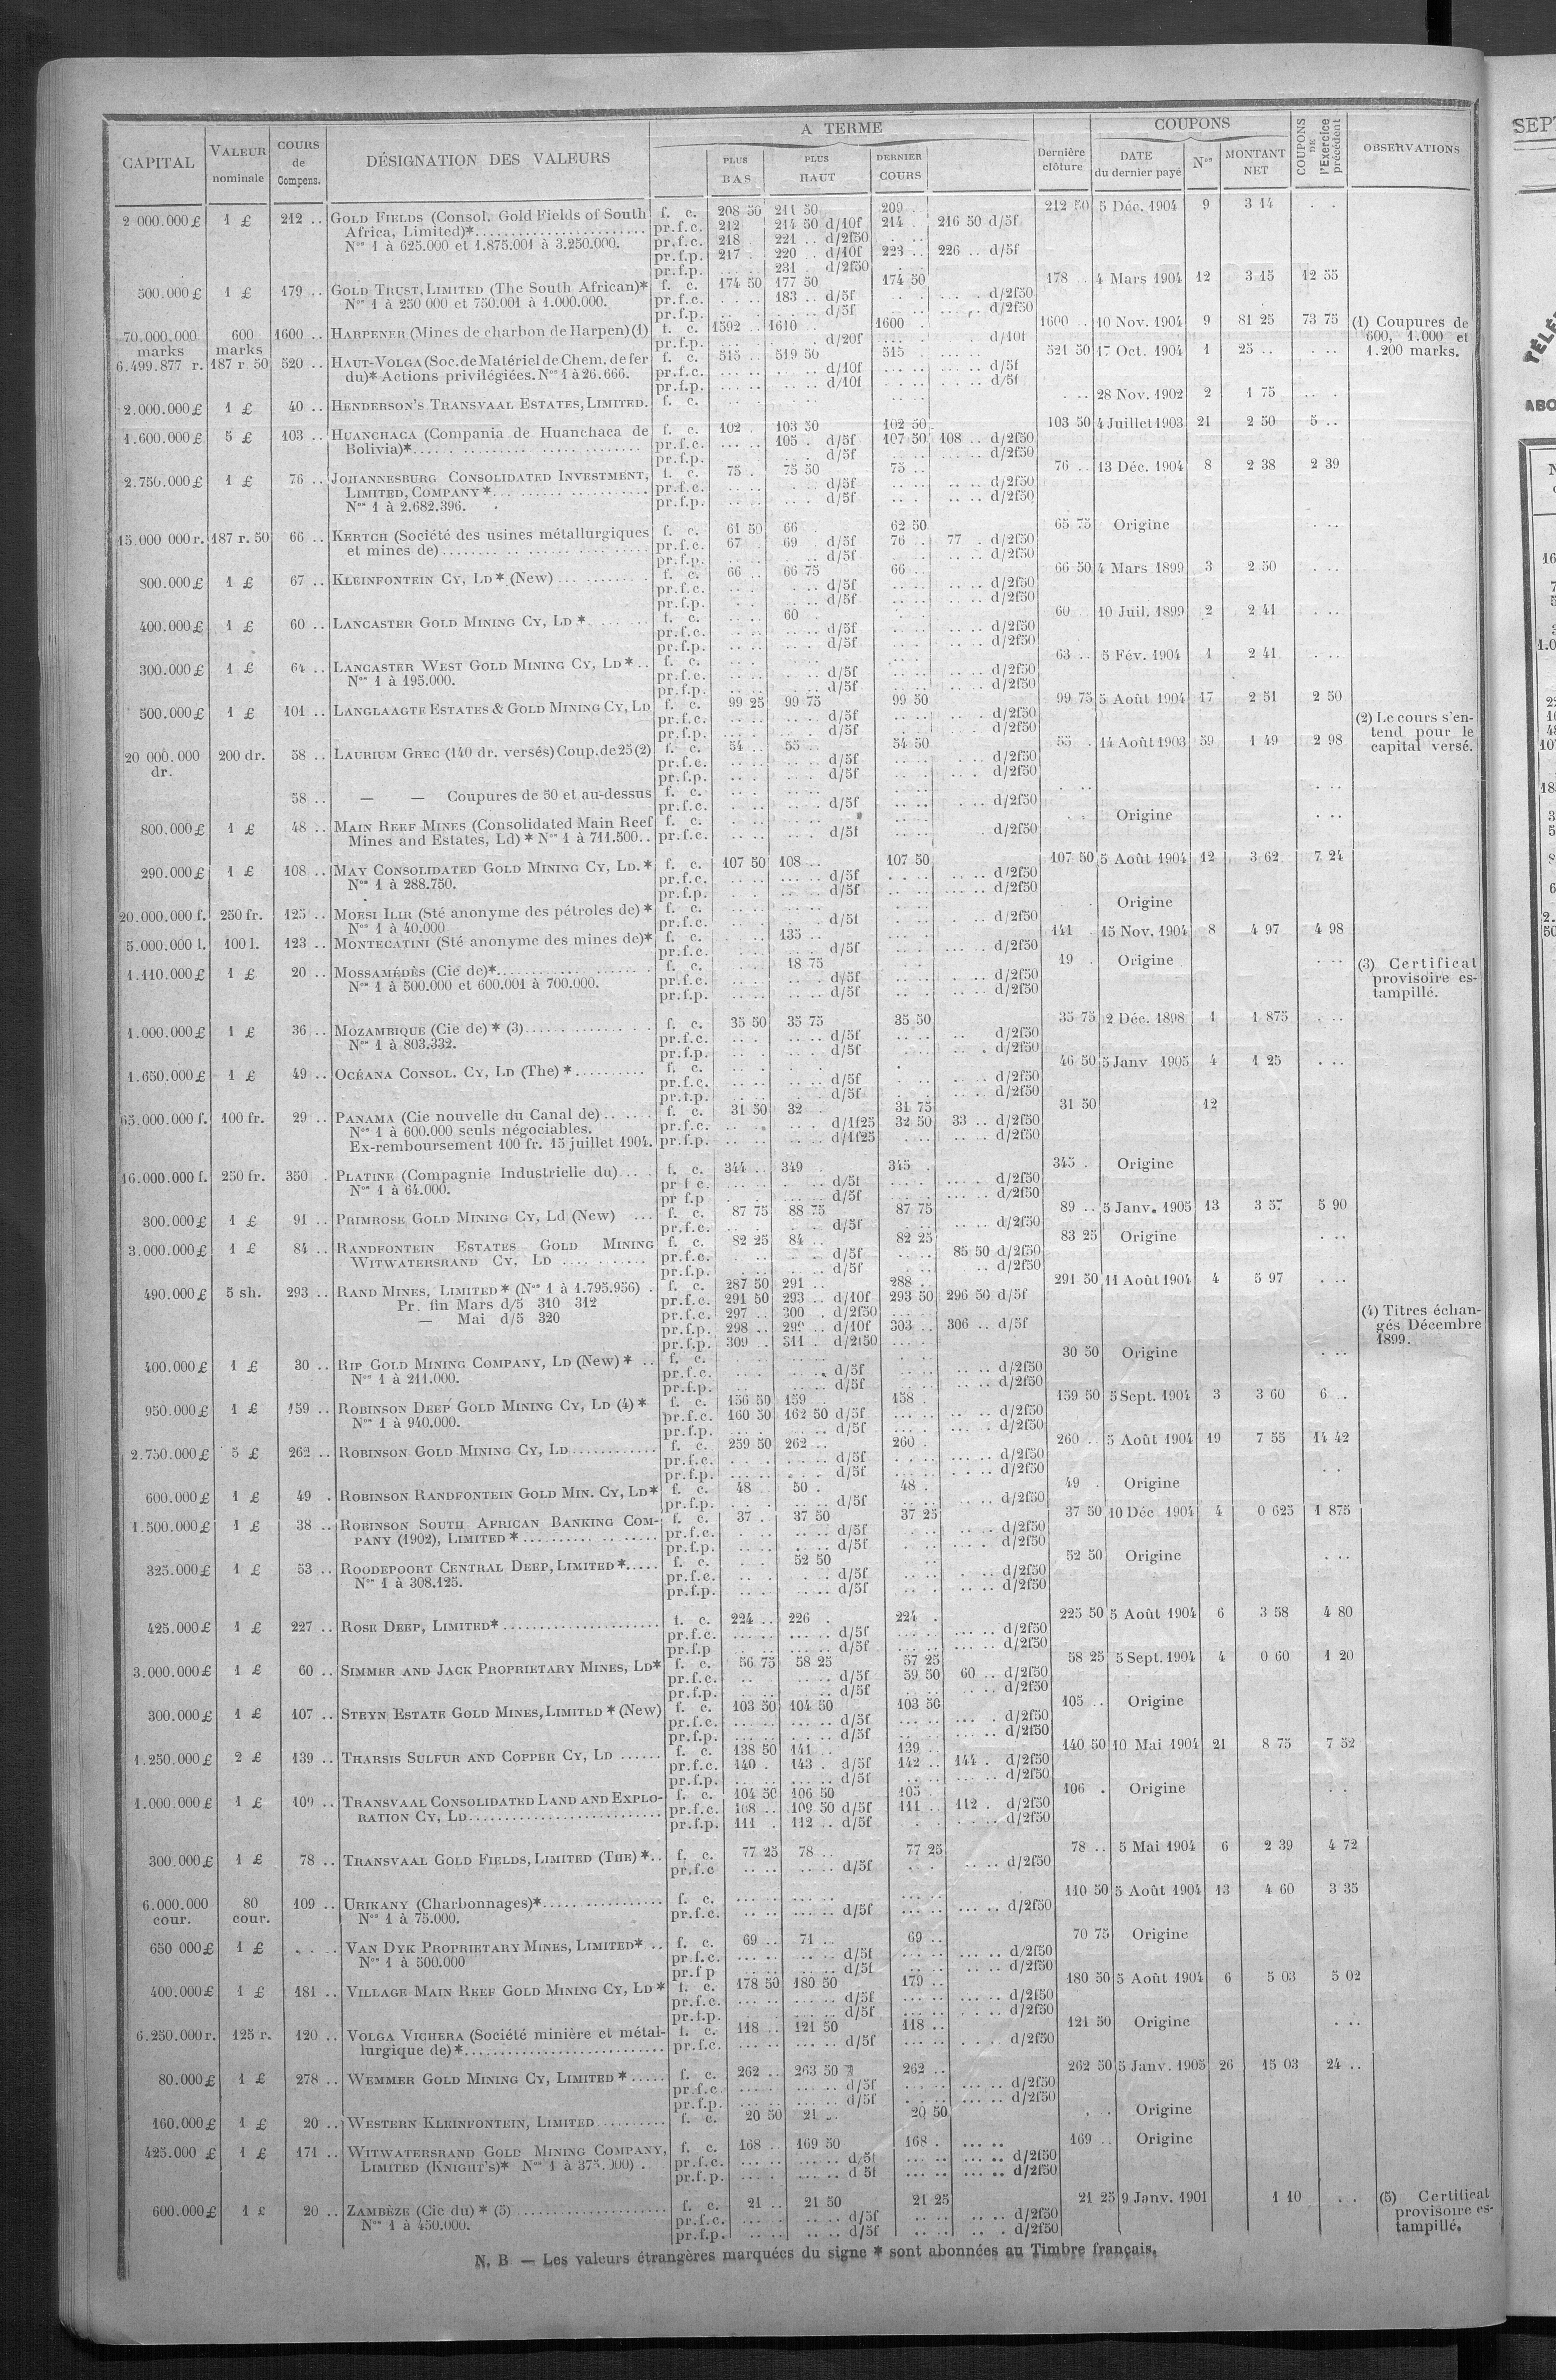 A TERME
COUPONS
CAPITAL VALEUR nominale COURS de Compens. DÉSIGNATION DES VALEURS PLUS BAS PLUS HAUT DERNIER COURS Dernière clôture DATE du dernier payé Nos MONTANT NET COUPONS DE l'Exercice précédent OBSERVATIONS
2 000.000 £ 1 £ 212 .. GOLD FIELDS (Consol. Gold Fields of South f. c. 208 50 211 50 209 . 212 50 5 Déc. 1904 9 3 14 . .
Africa, Limited)* pr.f.c. 212 214 50 d/10f 214 . 216 50 d/5f
Nos 1 à 625.000 et 1.875.001 à 3.250.000. pr.f.c. 218 221 .. d/2f50
pr.f.p. 217 . 220 .. d/10f 223 .. 226 .. d/5f
pr.f.p. 231 . d/2f50
500.000 £ 1 £ 179 .. GOLD TRUST, LIMITED (The South African)* f. c. 174 50 177 50 174 50 178 .. 4 Mars 1904 12 3 15 12 55
Nos 1 à 250 000 et 750.001 à 1.000.000. pr.f.c. 183 .. d/5f d/2f50
pr.f.p. d/5f d/2f50
70.000.000 marks 600 marks 1600 .. HARPENER (Mines de charbon de Harpen) (1) f. c. 1592 .. 1610 . 1600 . 1600 .. 10 Nov. 1904 9 81 25 73 75 (1) Coupures de 600, 1.000 et 1.200 marks.
pr.f.p. d/20f d/10f
6.499.877 r. 187 r 50 520 .. HAUT-VOLGA (Soc. de Matériel de Chem. de fer f. c. 515 .. 519 50 515 521 50 17 Oct. 1904 1 25 ..
du)* Actions privilégiées. Nos 1 à 26.666. pr.f.c. d/10f d/5f
pr.f.p. d/10f d/5f
2.000.000 £ 1 £ 40 .. HENDERSON'S TRANSVAAL ESTATES, LIMITED. f. c. 28 Nov. 1902 2 1 75
1.600.000 £ 5 £ 103 .. HUANCHACA (Compania de Huanchaca de f. c. 102 . 103 50 102 50 103 50 4 Juillet 1903 21 2 50 5 ..
Bolivia)* pr.f.c. 105 . d/5f 107 50 108 .. d/2f50
pr.f.p. d/5f d/2f50
2.750.000 £ 1 £ 76 .. JOHANNESBURG CONSOLIDATED INVESTMENT, f. c. 75 . 75 50 75 .. 76 .. 13 Déc. 1904 8 2 38 2 39
LIMITED, COMPANY * pr.f.c. d/5f d/2f50
Nos 1 à 2.682.396. pr.f.p. d/5f d/2f50
15.000 000 r. 187 r. 50 66 .. KERTCH (Société des usines métallurgiques f. c. 61 50 66 . 62 50 65 75 Origine
et mines de) pr.f.c. 67 . 69 d/5f 76 .. 77 . d/2f50
pr.f.p. d/5f d/2f50
800.000 £ 1 £ 67 .. KLEINFONTEIN CY, LD * (New) f. c. 66 .. 66 75 66 .. 66 50 4 Mars 1899 3 2 50
pr.f.c. d/5f d/2f50
pr.f.p. d/5f d/2f50
400.000 £ 1 £ 60 .. LANCASTER GOLD MINING CY, LD * f. c. 60 . 60 10 Juil. 1899 2 2 41
pr.f.c. d/5f d/2f50
pr.f.p. d/5f d/2f50
300.000 £ 1 £ 64 .. LANCASTER WEST GOLD MINING CY, LD * .. f. c. 63 .. 5 Fév. 1904 1 2 41
Nos 1 à 195.000. pr.f.c. d/5f d/2f50
pr.f.p. d/5f d/2f50
500.000 £ 1 £ 101 .. LANGLAAGTE ESTATES & GOLD MINING CY, LD f. c. 99 25 99 75 99 50 99 75 5 Août 1904 17 2 51 2 50
pr.f.c. d/5f d/2f50
pr.f.p. d/5f d/2f50
20 000.000 dr. 200 dr. 58 .. LAURIUM GREC (140 dr. versés) Coup. de 25 (2) f. c. 54 .. 55 .. 54 50 55 . 14 Août 1903 59 1 49 2 98 (2) Le cours s'entend pour le capital versé.
pr.f.c. d/5f d/2f50
pr.f.p. d/5f d/2f50
58 .. — — Coupures de 50 et au-dessus f. c.
pr.f.c. d/5f d/2f50
800.000 £ 1 £ 48 .. MAIN REEF MINES (Consolidated Main Reef f. c. Origine
Mines and Estates, Ld) * Nos 1 à 711.500.. pr.f.c. d/5f d/2f50
290.000 £ 1 £ 108 .. MAY CONSOLIDATED GOLD MINING CY, LD. * f. c. 107 50 108 .. 107 50 107 50 5 Août 1904 12 3 62 7 24
Nos 1 à 288.750. pr.f.c. d/5f d/2f50
pr.f.p. d/5f d/2f50
20.000.000 f. 250 fr. 125 .. MOESI ILIR (Sté anonyme des pétroles de) * f. c. Origine
Nos 1 à 40.000 pr.f.c. d/5f d/2f50
5.000.000 l. 100 l. 123 .. MONTECATINI (Sté anonyme des mines de)* f. c. 135 .. 141 15 Nov. 1904 8 4 97 4 98
pr.f.c. d/5f d/2f50
1.110.000 £ 1 £ 20 .. MOSSAMÉDÈS (Cie de)* f. c. 18 75 19 . Origine (3) Certificat provisoire estampillé.
Nos 1 à 500.000 et 600.001 à 700.000. pr.f.c. d/5f d/2f50
pr.f.p. d/5f d/2f50
1.000.000 £ 1 £ 36 .. MOZAMBIQUE (Cie de) * (3) f. c. 35 50 35 75 35 50 35 75 2 Déc. 1898 1 1 875
Nos 1 à 803.332. pr.f.c. d/5f d/2f50
pr.f.p. d/5f d/2f50
1.650.000 £ 1 £ 49 .. OCÉANA CONSOL. CY, LD (The) * f. c. 46 50 5 Janv 1905 4 1 25
pr.f.c. d/5f d/2f50
pr.f.p. d/5f d/2f50
65.000.000 f. 100 fr. 29 .. PANAMA (Cie nouvelle du Canal de) f. c. 31 50 32 . 31 75 31 50 12
Nos 1 à 600.000 seuls négociables. pr.f.c. d/1f25 32 50 33 .. d/2f50
Ex-remboursement 100 fr. 15 juillet 1904. pr.f.p. d/1f25 d/2f50
16.000.000 f. 250 fr. 350 . PLATINE (Compagnie Industrielle du) f. c. 344 .. 349 . 345 . 345 . Origine
Nos 1 à 64.000. pr f c. d/5f d/2f50
pr f.p d/5f d/2f50
300.000 £ 1 £ 91 .. PRIMROSE GOLD MINING CY, Ld (New) f. c. 87 75 88 75 87 75 89 .. 5 Janv. 1905 13 3 57 5 90
pr.f.c. d/5f d/2f50
3.000.000 £ 1 £ 84 .. RANDFONTEIN ESTATES GOLD MINING f. c. 82 25 84 .. 82 25 83 25 Origine
WITWATERSRAND CY, LD pr.f.c. d/5f 85 50 d/2f50
pr.f.p. d/5f d/2f50
490.000 £ 5 sh. 293 .. RAND MINES, LIMITED * (Nos 1 à 1.795.956) . f. c. 287 50 291 .. 288 . 291 50 11 Août 1904 4 5 97
Pr. fin Mars d/5 310 312 pr.f.c. 291 50 293 .. d/10f 293 50 296 50 d/5f
— Mai d/5 320 pr.f.c. 297 .. 300 . d/2f50
pr.f.p. 298 .. 299 .. d/10f 303 .. 306 .. d/5f (4) Titres échangés Décembre 1899.
pr.f.p. 309 .. 311 . d/2f50
400.000 £ 1 £ 30 .. RIP GOLD MINING COMPANY, LD (New) * .. f. c. 30 50 Origine
Nos 1 à 211.000. pr.f.c. d/5f d/2f50
pr.f.p. d/5f d/2f50
950.000 £ 1 £ 159 .. ROBINSON DEEP GOLD MINING CY, LD (4) * f. c. 156 50 159 . 158 . 159 50 5 Sept. 1904 3 3 60 6 .
Nos 1 à 940.000. pr.f.c. 160 50 162 50 d/5f d/2f50
pr.f.p. d/5f d/2f50
2.750.000 £ 5 £ 262 .. ROBINSON GOLD MINING CY, LD f. c. 259 50 262 .. 260 . 260 .. 5 Août 1904 19 7 55 14 42
pr.f.c. d/5f d/2f50
pr.f.p. d/5f d/2f50
600.000 £ 1 £ 49 . ROBINSON RANDFONTEIN GOLD MIN. CY, LD* f. c. 48 .. 50 . 48 . 49 . Origine
pr.f.p. d/5f d/2f50
1.500.000 £ 1 £ 38 .. ROBINSON SOUTH AFRICAN BANKING COM- f. c. 37 . 37 50 37 25 37 50 10 Déc 1904 4 0 625 1 875
PANY (1902), LIMITED * pr.f.c. d/5f d/2f50
pr.f.p. d/5f d/2f50
325.000 £ 1 £ 53 .. ROODEPOORT CENTRAL DEEP, LIMITED * f. c. 52 50 52 50 Origine
Nos 1 à 308.125. pr.f.c. d/5f d/2f50
pr.f.p. d/5f d/2f50
425.000 £ 1 £ 227 .. ROSE DEEP, LIMITED* f. c. 224 .. 226 . 224 . 225 50 5 Août 1904 6 3 58 4 80
pr.f.c. d/5f d/2f50
pr.f.p d/5f d/2f50
3.000.000 £ 1 £ 60 .. SIMMER AND JACK PROPRIETARY MINES, LD* f. c. 56 75 58 25 57 25 58 25 5 Sept. 1904 4 0 60 1 20
pr.f.c. d/5f 59 50 60 .. d/2f50
pr.f.p. d/5f d/2f50
300.000 £ 1 £ 107 .. STEYN ESTATE GOLD MINES, LIMITED * (New) f. c. 103 50 104 50 103 50 105 .. Origine
pr.f.c. d/5f d/2f50
pr.f.p. d/5f d/2f50
1.250.000 £ 2 £ 139 .. THARSIS SULFUR AND COPPER CY, LD f. c. 138 50 141 .. 139 .. 140 50 10 Mai 1904 21 8 75 7 52
pr.f.c. 140 . 143 . d/5f 142 .. 144 . d/2f50
pr.f.p. d/5f d/2f50
1.000.000 £ 1 £ 109 .. TRANSVAAL CONSOLIDATED LAND AND EXPLO- f. c. 104 50 106 50 105 . 106 . Origine
RATION CY, LD pr.f.c. 108 .. 109 50 d/5f 111 .. 112 . d/2f50
pr.f.p. 111 . 112 .. d/5f d/2f50
300.000 £ 1 £ 78 .. TRANSVAAL GOLD FIELDS, LIMITED (THE) * .. f. c. 77 25 78 .. 77 25 78 .. 5 Mai 1904 6 2 39 4 72
pr.f.c d/5f d/2f50
6.000.000 cour. 80 cour. 109 .. URIKANY (Charbonnages)* f. c. 110 50 5 Août 1904 13 4 60 3 35
Nos 1 à 75.000. pr.f.c. d/5f d/2f50
650 000 £ 1 £ VAN DYK PROPRIETARY MINES, LIMITED* .. f. c. 69 .. 71 .. 69 .. 70 75 Origine
Nos 1 à 500.000 pr.f.c. d/5f d/2f50
pr.f p d/5f d/2f50
400.000 £ 1 £ 181 .. VILLAGE MAIN REEF GOLD MINING CY, LD * f. c. 178 50 180 50 179 .. 180 50 5 Août 1904 6 5 03 5 02
pr.f.c. d/5f d/2f50
pr.f.p. d/5f d/2f50
6.250.000 r. 125 r. 120 .. VOLGA VICHERA (Société minière et métal- f. c. 118 .. 121 50 118 .. 121 50 Origine
lurgique de) * pr.f.c. d/5f d/2f50
80.000 £ 1 £ 278 .. WEMMER GOLD MINING CY, LIMITED * f. c. 262 .. 263 50 262 .. 262 50 5 Janv. 1905 26 15 03 24 ..
pr.f.c d/5f d/2f50
pr.f.p. d/5f d/2f50
160.000 £ 1 £ 20 .. WESTERN KLEINFONTEIN, LIMITED f. c. 20 50 21 .. 20 50 Origine
425.000 £ 1 £ 171 .. WITWATERSRAND GOLD MINING COMPANY, f. c. 168 .. 169 50 168 . 169 .. Origine
LIMITED (KNIGHT'S)* Nos 1 à 375.000) . pr.f.c. d/5f d/2f50
pr.f.p. d 5f d/2f50
600.000 £ 1 £ 20 .. ZAMBÈZE (Cie du) * (5) f. c. 21 .. 21 50 21 25 21 25 9 Janv. 1901 1 10 (5) Certificat provisoire estampillé.
Nos 1 à 450.000. pr.f.c. d/5f d/2f50
pr.f.p. d/5f d/2f50
N. B — Les valeurs étrangères marquées du signe * sont abonnées au Timbre français.